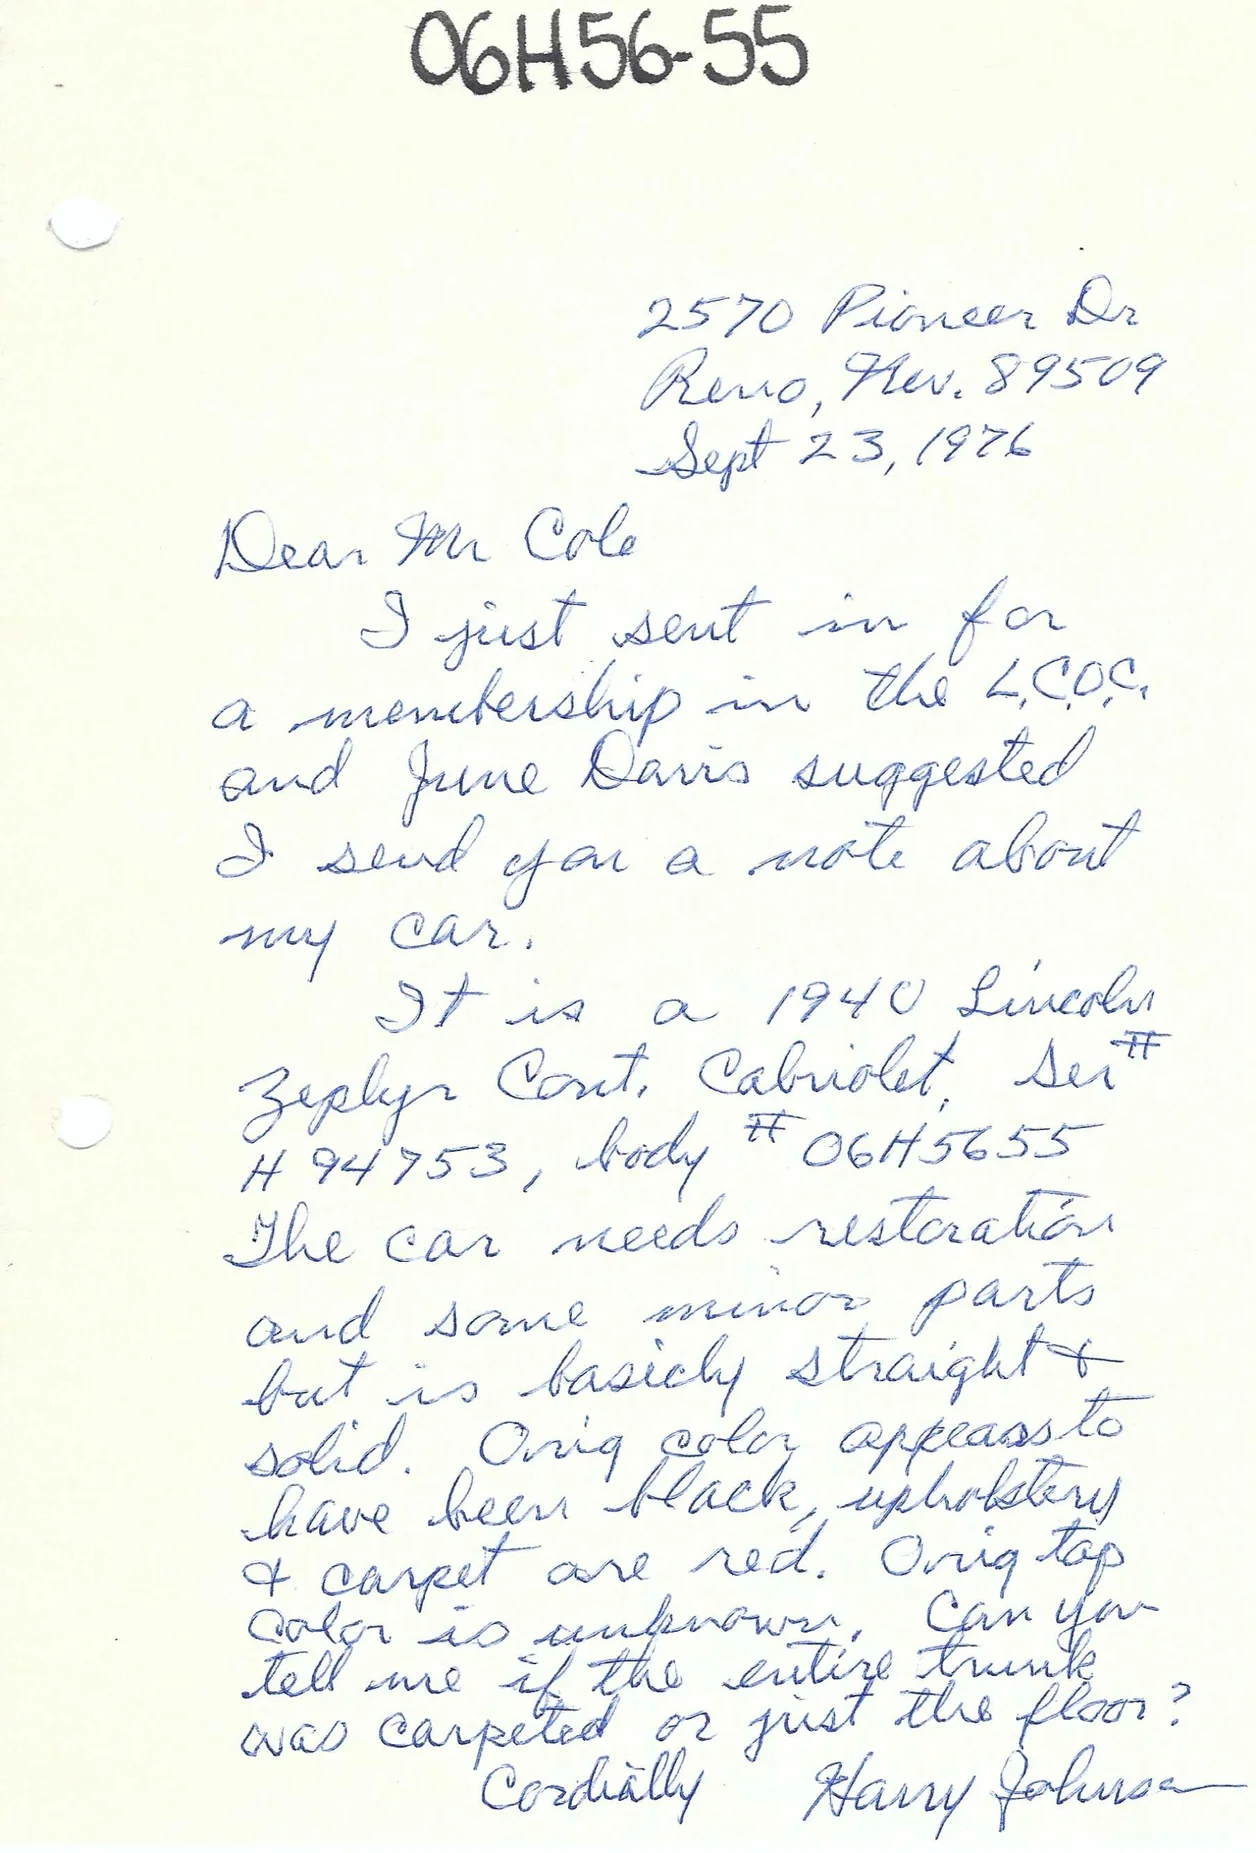 06H56-55
2570 Pioneer Dr
Reno, Nev. 89509
Sept 23, 1976
Dear Mr Cole
I just sent in for
a membership in the L.C.O.C.
and June Davis suggested
I send you a note about
my car.
It is a 1940 Lincoln
Zephyr Cont. Cabriolet, Ser #
H 94753, body # 06H5655
The car needs restoration
and some minor parts
but is basicly straight &
solid. Orig color appears to
have been black, upholstery
& carpet are red. Orig top
color is unknown. Can you
tell me if the entire trunk
was carpeted or just the floor?
Cordially Harry Johnson